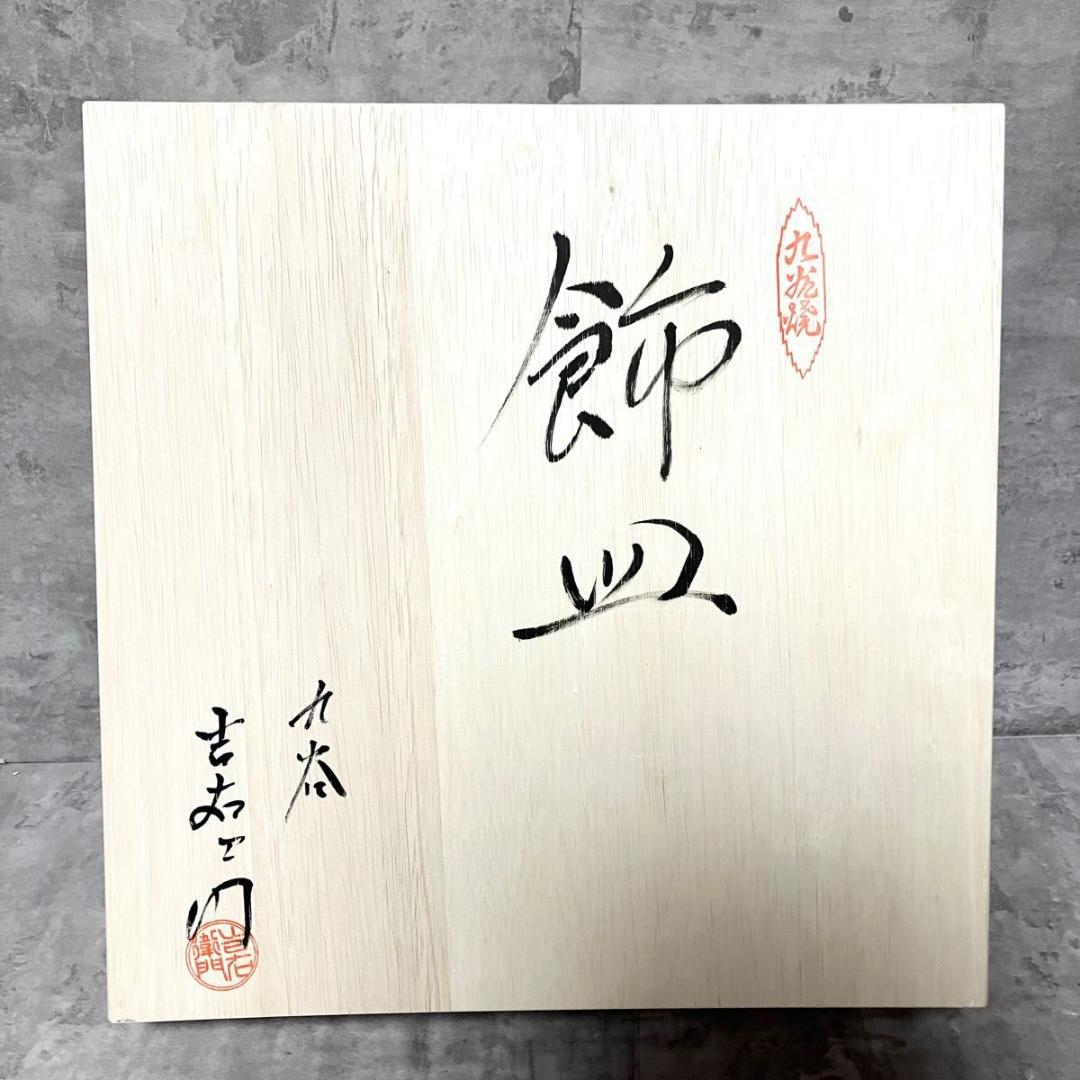 九谷焼
飾皿
九谷
吉右エ門
吉右衛門